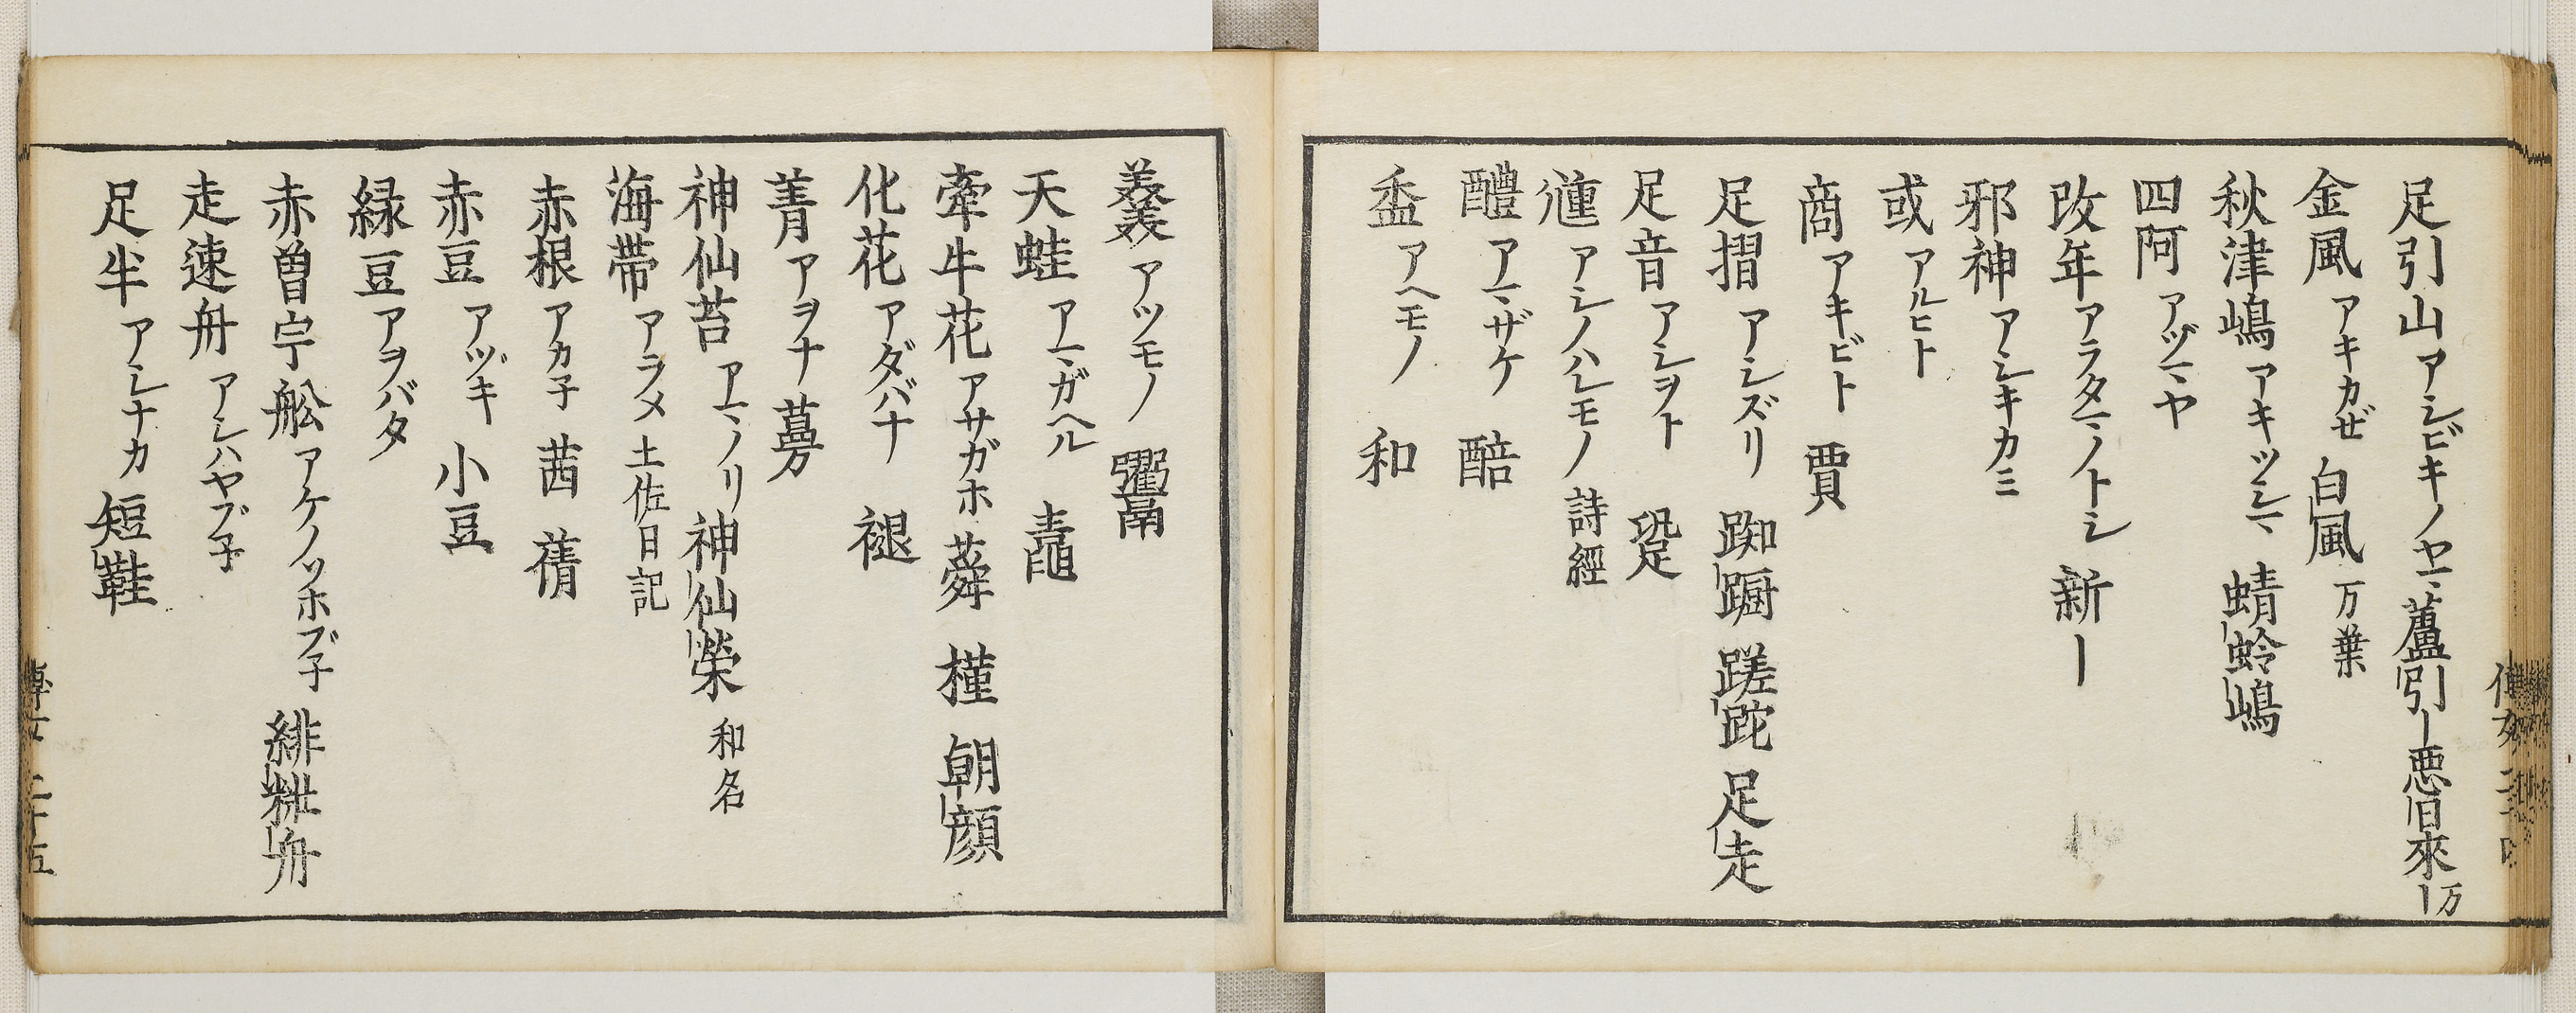 足引山 アシビキノヤマ 蘆引ー 悪旧來ー 万
金風 アキカゼ 白風 万葉
秋津嶋 アキツシマ 蜻蛉嶋
四阿 アヅマヤ
改年 アラタマノトシ 新ー
邪神 アシキカミ
或 アルヒト
商 アキビト 賈
足摺 アシズリ 踟蹰 蹉跎 足走
足音 アシヲト 跫
アシノハレモノ 詩經
醴 アマザケ 醅
アヘモノ 和
アツモノ
天蛙 アマガヘル
牽牛花 アサガホ 蕣 槿 朝顔
化花 アダバナ 褪
菁 アヲナ
神仙苔 アマノリ 神仙榮 和名
海帶 アラメ 土佐日記
赤根 アカ子 茜 蒨
赤豆 アヅキ 小豆
緑豆 アヲバタ
赤曽宇舩 アケノソホブ子 緋粃舟
走速舟 アシハヤブ子
足半 アシナカ 短鞋